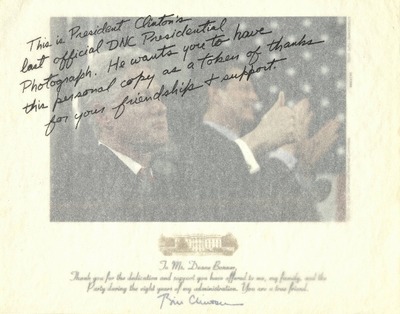 This is President Clinton's
last official DNC Presidential
Photograph. He wants you to have
this personal copy as a token of thanks
for your friendship & support.
To Mr. Duane Bonner,
Thank you for the dedication and support you have offered to me, my family, and the
Party during the eight years of my administration. You are a true friend.
Bill Clinton